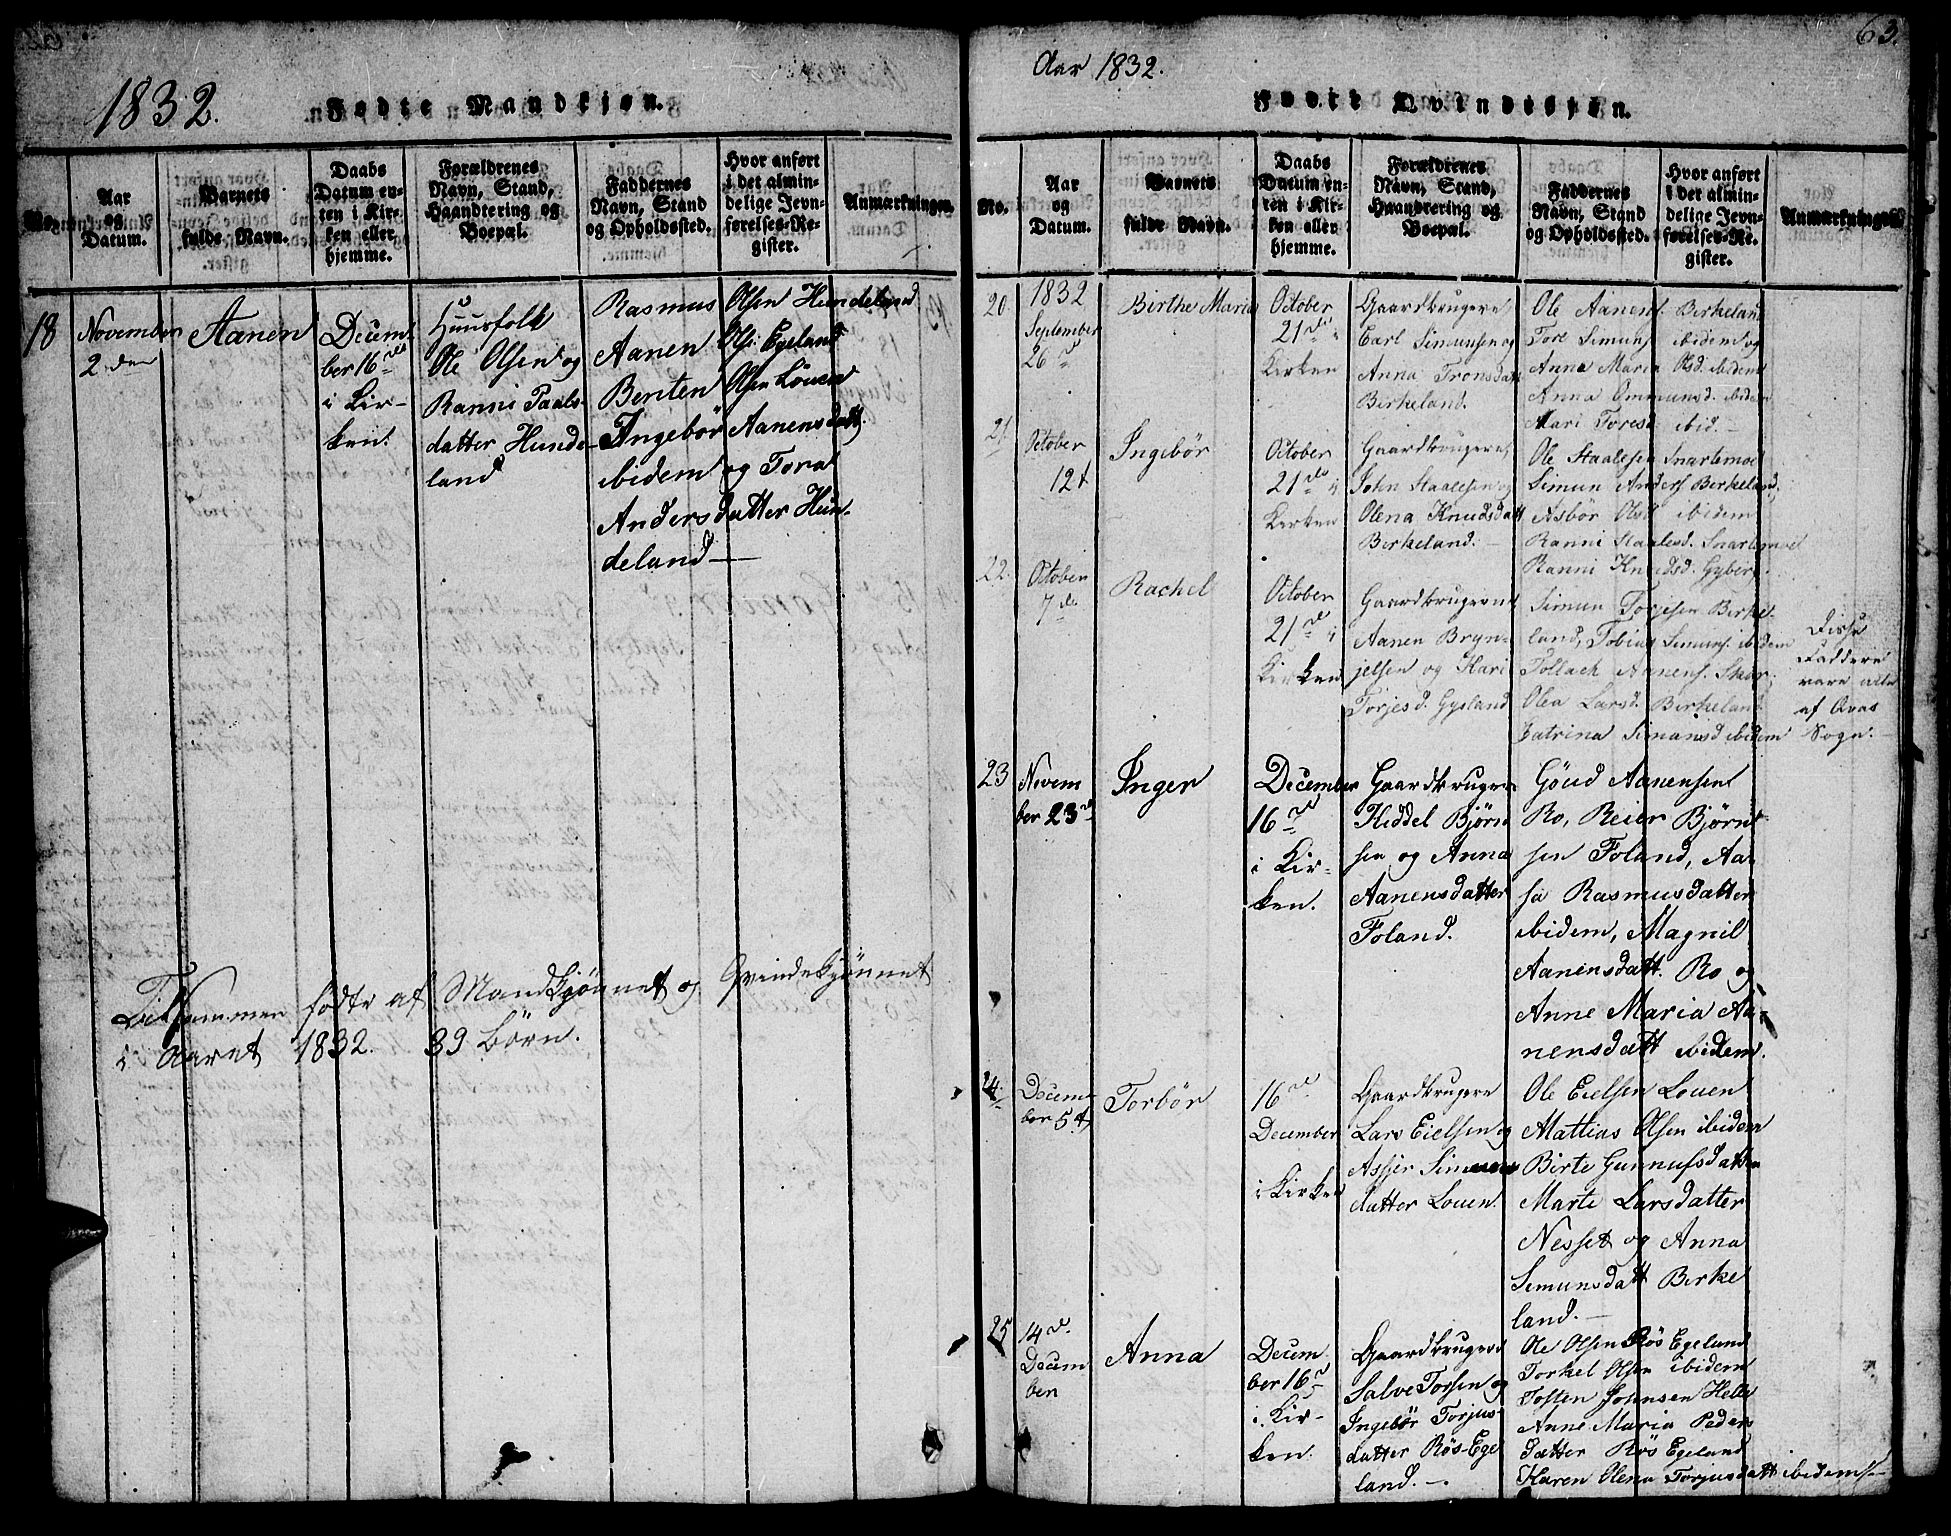 1832.
Fødte Mandkjøn.
No.
Aar
og
Datum.
Barnets
fulde Navn.
Daabs
Datum en-
ten i Kir-
ken eller
hjemme.
Forældrenes
Navn, Stand,
Haandtering og
Boepæl.
Faddernes
Navn, Stand
og Opholdssted.
Hvor anført
i det almin-
delige Jevn-
førelses-Re-
gister.
Anmærkninger.
18
November
2den
Aanen
Decem-
ber 16de
i Kir-
ken.
Huusfolk
Ole Olsen og
Ranni Paals-
datter Hunde-
land
Rasmus Olsen Hundeland
Aanen Ols: Egeland
Benten Olsen Löuen
Ingebör Aanensdatt.
ibidem og Tora
Andersdatter Hun-
deland —
Tilsammen födte af Mandkjönnet og Qvindekjönnet
i Aaret 1832. 39 Börn.
63.
Aar 1832.
Fødte Qvindekjøn.
No.
Aar
og
Datum.
Barnets
fulde Navn.
Daabs
Datum en-
ten i Kir-
ken eller
hjemme.
Forældrenes
Navn, Stand,
Haandtering og
Boepæl.
Faddernes
Navn, Stand
og Opholdssted.
Hvor anført
i det almin-
delige Jevn-
førelses-Re-
gister.
Anmærkninger
20.
1832
September
26de
Birthe Maria
October
21de i
Kirken
Gaardbrugere
Carl Simunsen og
Anna Tronsdatt
Birkeland.
Ole Aanens. Birkeland
Tore Simuns. ibidem og
Anna Maria Olsd. ibidem
Anna Ommunsd. ibidem
Mari Toresd. ibid. —
21
October
12t
Ingebör
October
21de i
Kirken
Gaardbrugere
John Staalesen og
Olena Knudsdatt
Birkeland. —
Ole Staalesen Snartemoe
Simun Anders. Birkeland,
Asbör Olsd. ibidem
Ranni Staalesd. Snartemoe
Ranni Knudsd. Gyber.
22.
October
7de
Rachel
October
21de i
Kirken
Gaardbrugere
Aanen Bryn-
jelsen og Kari
Torjesd. Gysland
Simun Torjesen Birke-
land, Tobias Simuns. ibidem
Tollach Aanens. Skar,
Olea Larsd. Birkeland
Catrina Simunsd ibidem
Disse
Faddere
vare alle
af Qvas
Sogn.
23
Novem
ber 23de
Inger
December
16de
i Kir-
ken.
Gaardbrugere
Kiddel Björn-
sen og Anna
Aanensdatter
Foland.
Göud Aanensen
Ro, Reier Björn-
sen Foland, Aa-
sa Rasmusdatter
ibidem, Magnil
Aanensdatt. Ro og
Anne Maria Aa-
nensdatt ibidem.
24.
Decem-
ber 5t
Torbör
16de
December
i Kirken
Gaardbrugere
Lars Eielsen og
Assjer Simuns
datter Louen.
Ole Eielsen Louen
Mattias Olsen ibidem
Birte Gunnufsdatter
Marte Larsdatter
Nesset og Anna
Simunsdatt Birke
land. —
25
14de
Decem
ber
Anna
Decem
ber 16de
i Kir-
ken.
Gaardbrugere
Salve Torsen og
Ingebör Torjus-
datter Rös-Ege
land. —
Ole Olsen Rös Egeland
Torkel Olsen ibidem
Tosten Johnsen Helle
Anne Maria Peders
datter Rös Egeland
Karen Olena Torjusdatt ibidem. —